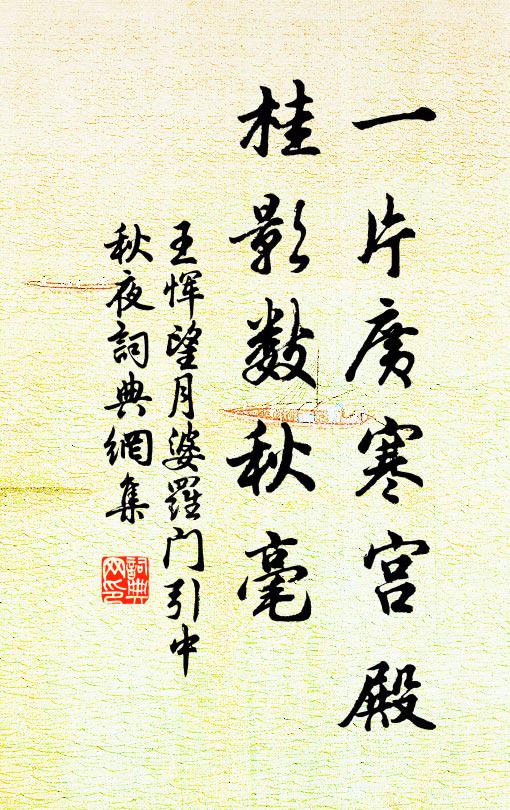 一片广寒宫殿
桂影数秋毫
王恽望月婆羅门引中
秋夜詞典網集
詞典
网印